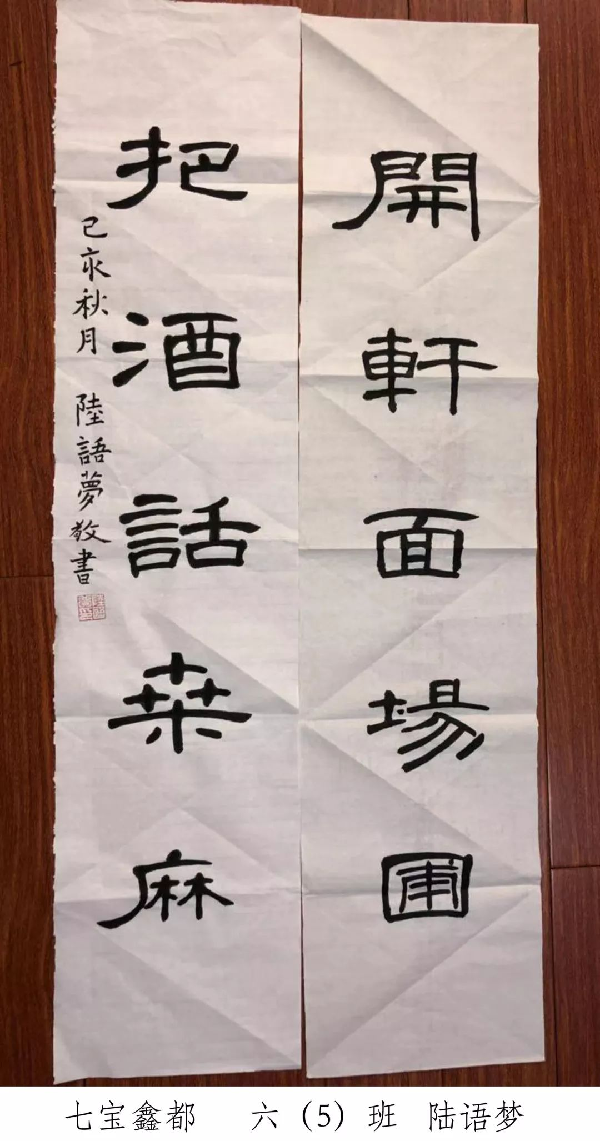 開軒面場圃
把酒話桒麻
己亥秋月 陸語夢敬書
七宝鑫都 六（5）班 陆语梦